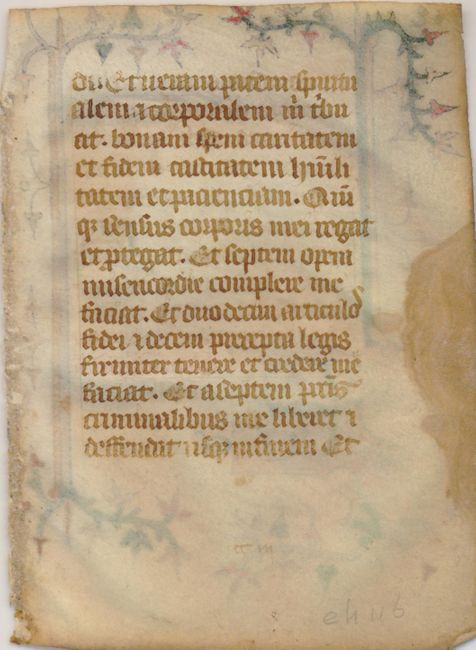 du. Et veram pacem spiritu
alem ⁊ corporalem m̄ tbu
at. bonam spem caritatem
et fidem castitatem hūili
tatem et pacienciam. Qūī
qȝ sensus corporis mei regat
et ꝓtegat. Et septem opera
misericordie complere me
faciat. Et duodecim articulos
fidei ⁊ decem precepta legis
firmiter tenere et credere me
faciat. Et a septem pctīs
criminalibus me liberet ⁊
deffendat usqȝ in finem Et